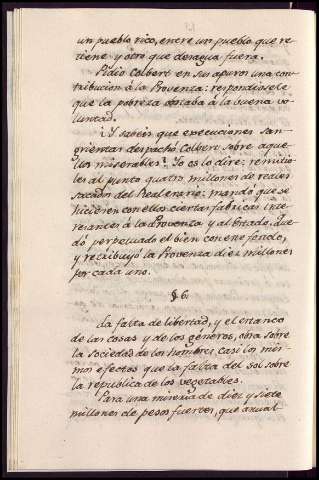 un pueblo rico, entre un pueblo que re
tiene y otro que desagua fuera.
Pidio Colbert en sus apuros una con
tribucion á la Provenza: respondiosele
que la pobreza ataba á la buena vo
luntad.
¿Y sabeis que execuciones san
grientas despachó Colbert sobre aque
llos miserables? Yo os lo diré: remitió
les al punto quatro millones de reales
sacados del Real erario: mandó que se
hiciesen con ellos ciertas fabricas inte
resantes á la Provenza y al Estado. Que
dó perpetuado el bien con ese fondo,
y retribuyó la Provenza diez millones
por cada uno.
§ 6.
La falta de libertad, y el estanco
de las cosas y de los géneros, obra sobre
la Sociedad de los hombres casi los mis
mos efectos que la falta del sol sobre
la republica de los vegetables.
Para una miseria de diez y siete
millones de pesos fuertes, que anual